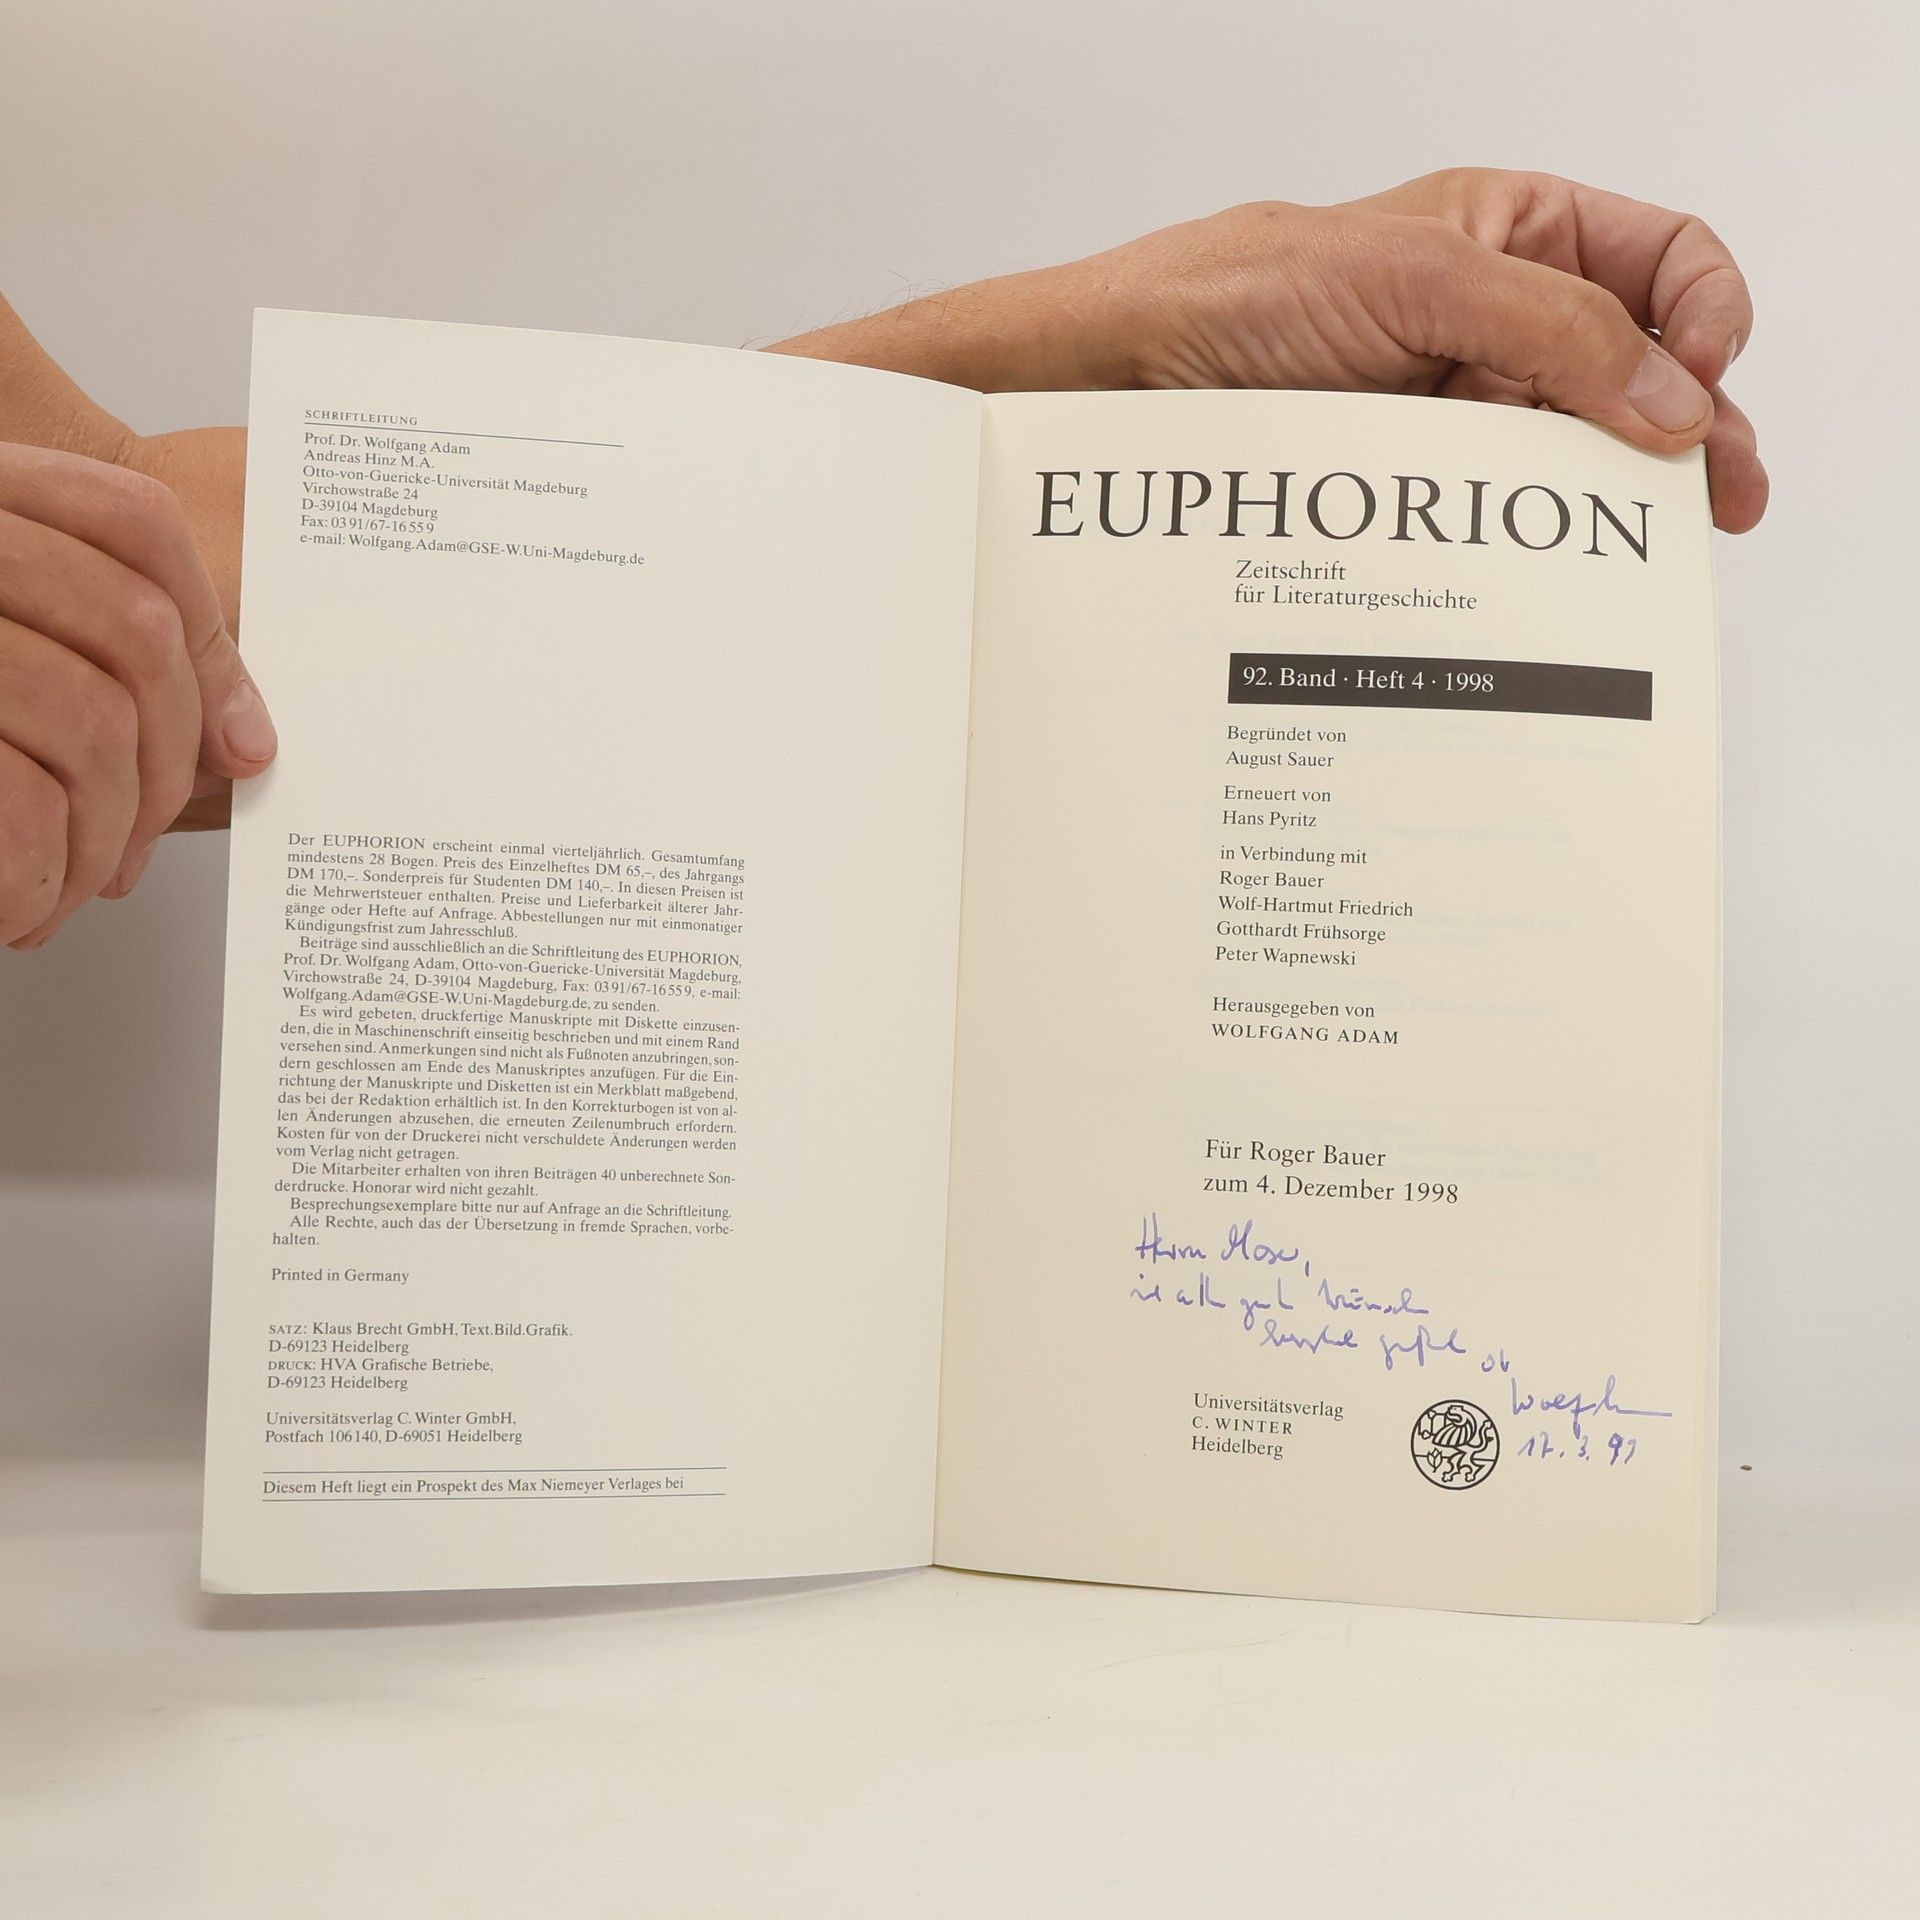 SCHRIFTLEITUNG
Prof. Dr. Wolfgang Adam
Andreas Hinz M.A.
Otto-von-Guericke-Universität Magdeburg
Virchowstraße 24
D-39104 Magdeburg
Fax: 03 91/67-16 55 9
e-mail: Wolfgang.Adam@GSE-W.Uni-Magdeburg.de
Der EUPHORION erscheint einmal vierteljährlich. Gesamtumfang
mindestens 28 Bogen. Preis des Einzelheftes DM 65,–, des Jahrgangs
DM 170,–. Sonderpreis für Studenten DM 140,–. In diesen Preisen ist
die Mehrwertsteuer enthalten. Preise und Lieferbarkeit älterer Jahr-
gänge oder Hefte auf Anfrage. Abbestellungen nur mit einmonatiger
Kündigungsfrist zum Jahresschluß.
Beiträge sind ausschließlich an die Schriftleitung des EUPHORION,
Prof. Dr. Wolfgang Adam, Otto-von-Guericke-Universität Magdeburg,
Virchowstraße 24, D-39104 Magdeburg, Fax: 03 91/67-16 55 9, e-mail:
Wolfgang.Adam@GSE-W.Uni-Magdeburg.de, zu senden.
Es wird gebeten, druckfertige Manuskripte mit Diskette einzusen-
den, die in Maschinenschrift einseitig beschrieben und mit einem Rand
versehen sind. Anmerkungen sind nicht als Fußnoten anzubringen, son-
dern geschlossen am Ende des Manuskriptes anzufügen. Für die Ein-
richtung der Manuskripte und Disketten ist ein Merkblatt maßgebend,
das bei der Redaktion erhältlich ist. In den Korrekturbogen ist von al-
len Änderungen abzusehen, die erneuten Zeilenumbruch erfordern.
Kosten für von der Druckerei nicht verschuldete Änderungen werden
vom Verlag nicht getragen.
Die Mitarbeiter erhalten von ihren Beiträgen 40 unberechnete Son-
derdrucke. Honorar wird nicht gezahlt.
Besprechungsexemplare bitte nur auf Anfrage an die Schriftleitung.
Alle Rechte, auch das der Übersetzung in fremde Sprachen, vorbe-
halten.
Printed in Germany
SATZ: Klaus Brecht GmbH, Text.Bild.Grafik.
D-69123 Heidelberg
DRUCK: HVA Grafische Betriebe,
D-69123 Heidelberg
Universitätsverlag C. Winter GmbH,
Postfach 106 140, D-69051 Heidelberg
Diesem Heft liegt ein Prospekt des Max Niemeyer Verlages bei
EUPHORION
Zeitschrift
für Literaturgeschichte
92. Band · Heft 4 · 1998
Begründet von
August Sauer
Erneuert von
Hans Pyritz
in Verbindung mit
Roger Bauer
Wolf-Hartmut Friedrich
Gotthardt Frühsorge
Peter Wapnewski
Herausgegeben von
WOLFGANG ADAM
Für Roger Bauer
zum 4. Dezember 1998
Herrn Moser,
Universitätsverlag
C. WINTER
Heidelberg